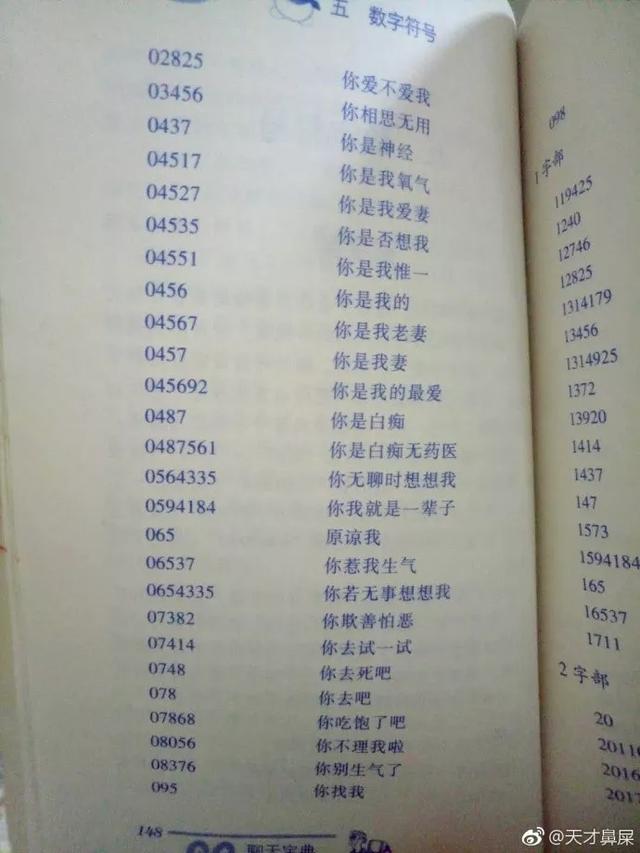 五 数字符号
02825 你爱不爱我
03456 你相思无用
0437 你是神经
04517 你是我氧气
04527 你是我爱妻
04535 你是否想我
04551 你是我惟一
0456 你是我的
04567 你是我老妻
0457 你是我妻
045692 你是我的最爱
0487 你是白痴
0487561 你是白痴无药医
0564335 你无聊时想想我
0594184 你我就是一辈子
065 原谅我
06537 你惹我生气
0654335 你若无事想想我
07382 你欺善怕恶
07414 你去试一试
0748 你去死吧
078 你去吧
07868 你吃饱了吧
08056 你不理我啦
08376 你别生气了
095 你找我
148
聊天字典
098
1字部
119425
1240
12746
12825
1314179
13456
1314925
1372
13920
1414
1437
147
1573
1594184
165
16537
1711
2字部
20
2016
2017
@天才鼻屎